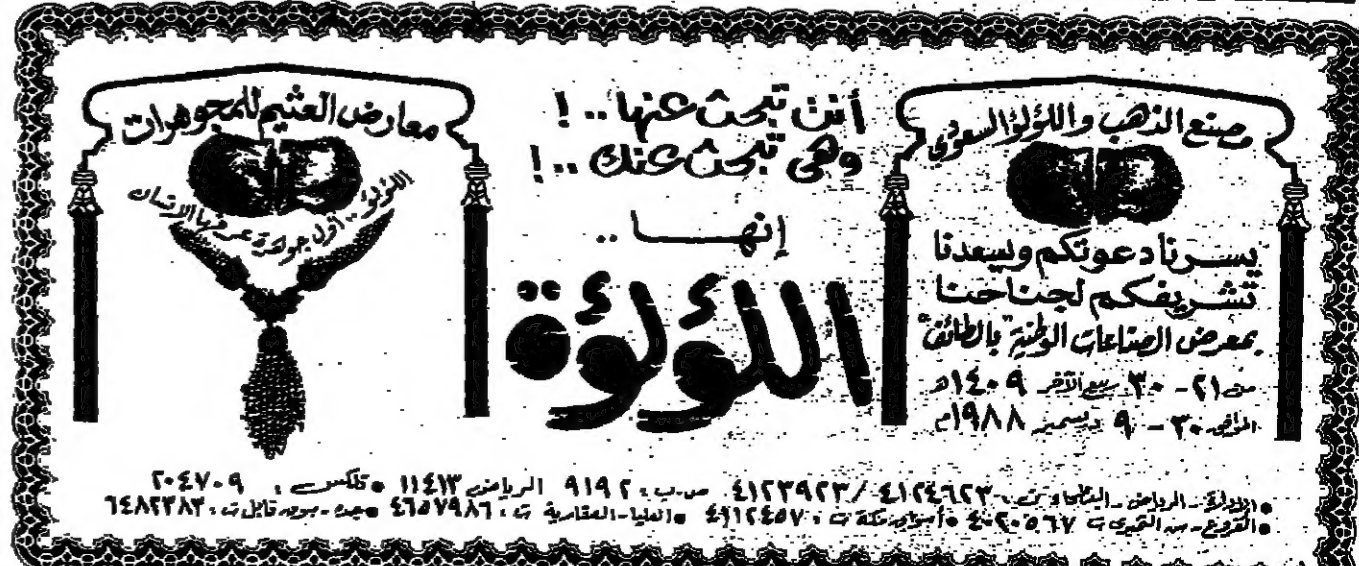 مصنع الذهب واللؤلؤ السعودي
يسرنا دعوتكم ويسعدنا
تشريفكم لجناحنا
بمعرض الصناعات الوطنية بالطائف
من ٢١ - ٣٠ ربيع الآخر ١٤٠٩هـ
الموافق ٣٠ - ٩ ديسمبر ١٩٨٨م
أنت تبحث عنها .. !
وهي تبحث عنك .. !
إنها ..
اللؤلؤة
معارض العثيم للمجوهرات
اللؤلؤ .. أول جوهرة عرفها الانسان
•الإدارة - الرياض - البطحاء ت : ٤١٢٤٦٢٣ / ٤١٢٣٩٢٣ ص.ب : ٩١٩٢ الرياض ١١٤١٣ •تلكس : ٢٠٤٧٠٩
•الفروع - ت ٤٠٢٠٥٦٧ •أسواق مكة ت : ٤٩١٢٤٥٧ •العليا - العقارية ت : ٤٦٥٧٩٨٦ •جدة - ت : ٦٤٨٢٣٨٣